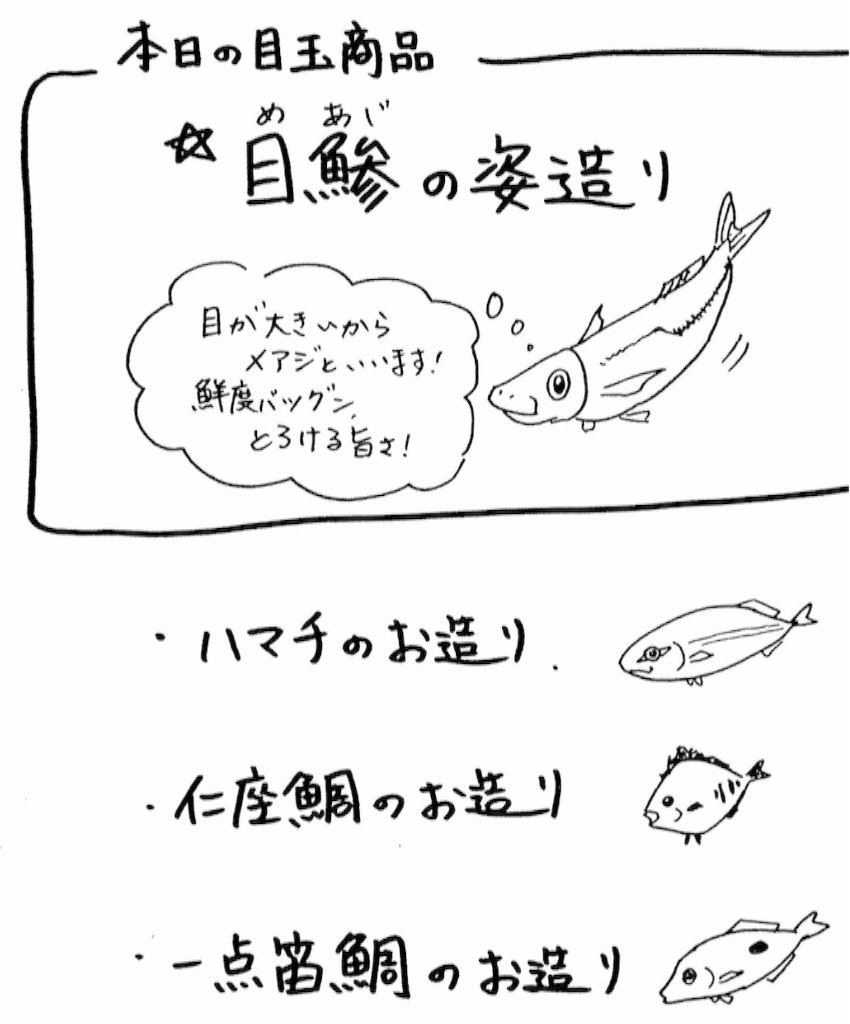 本日の目玉商品
めあじ
☆目鯵の姿造り
目が大きいから
メアジといいます!
鮮度バツグン、
とろける旨さ!
・ハマチのお造り
・仁座鯛のお造り
・一点笛鯛のお造り